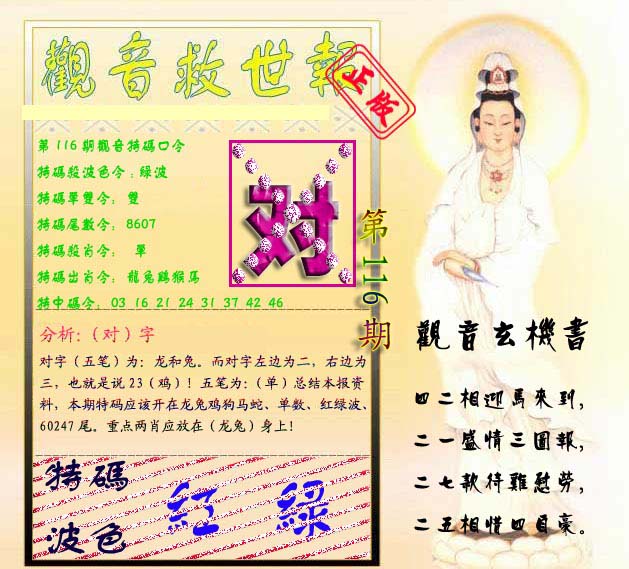 觀音救世報
正版
第116期觀音特碼口令
特碼殺波色令:綠波
特碼單雙令: 雙
特碼尾數令: 8607
特碼殺肖令: 單
特碼出肖令: 龍兔鷄猴馬
特中碼令: 03 16 21 24 31 37 42 46
对
第116期
分析:(对)字
对字(五笔)为:龙和兔。而对字左边为二,右边为
三,也就是说23(鸡)!五笔为:(单)总结本报资
料,本期特码应该开在龙兔鸡狗马蛇、单数、红绿波、
60247尾。重点两肖应放在(龙兔)身上!
特碼
波色
紅 綠
觀音玄機書
四二相迎馬來到,
二一盛情三圖報,
二七款待難慰勞,
二五相惜四自豪。